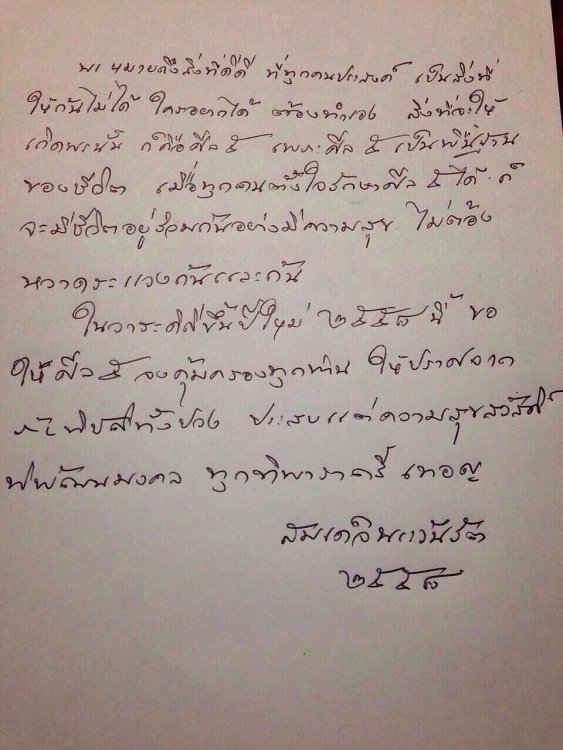 พร หมายถึงสิ่งที่ดีดี ที่ทุกคนประสงค์ เป็นสิ่งที่
ให้กันไม่ได้ ใครอยากได้ ต้องทำเอง สิ่งที่จะให้
เกิดพรนั้น ก็คือศีล ๕ เพราะศีล ๕ เป็นพื้นฐาน
ของชีวิต เมื่อทุกคนตั้งใจรักษาศีล ๕ ได้ ก็
จะมีชีวิตอยู่ร่วมกันอย่างมีความสุข ไม่ต้อง
หวาดระแวงกันและกัน
ในวาระดิถีขึ้นปีใหม่ ๒๕๕๘ นี้ ขอ
ให้ศีล ๕ จงคุ้มครองทุกท่าน ให้ปราศจาก
ภัยพิบัติทั้งปวง ประสบแต่ความสุขสวัสดี
พิพัฒนมงคล ทุกทิพาราตรี เทอญ
สมเด็จพระวันรัต
๒๕๕๘